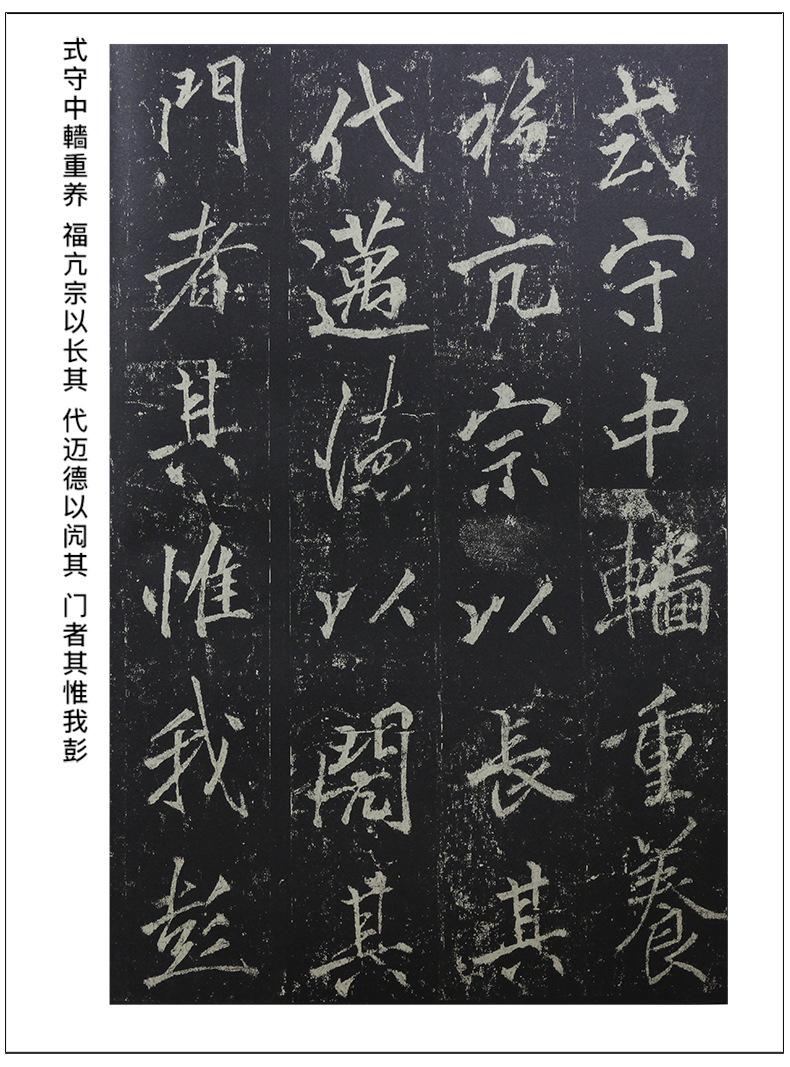 式守中轖重養
福亢宗以長其
代邁德以閌其
門者其惟我彭
式守中轖重养 福亢宗以长其 代迈德以闶其 门者其惟我彭